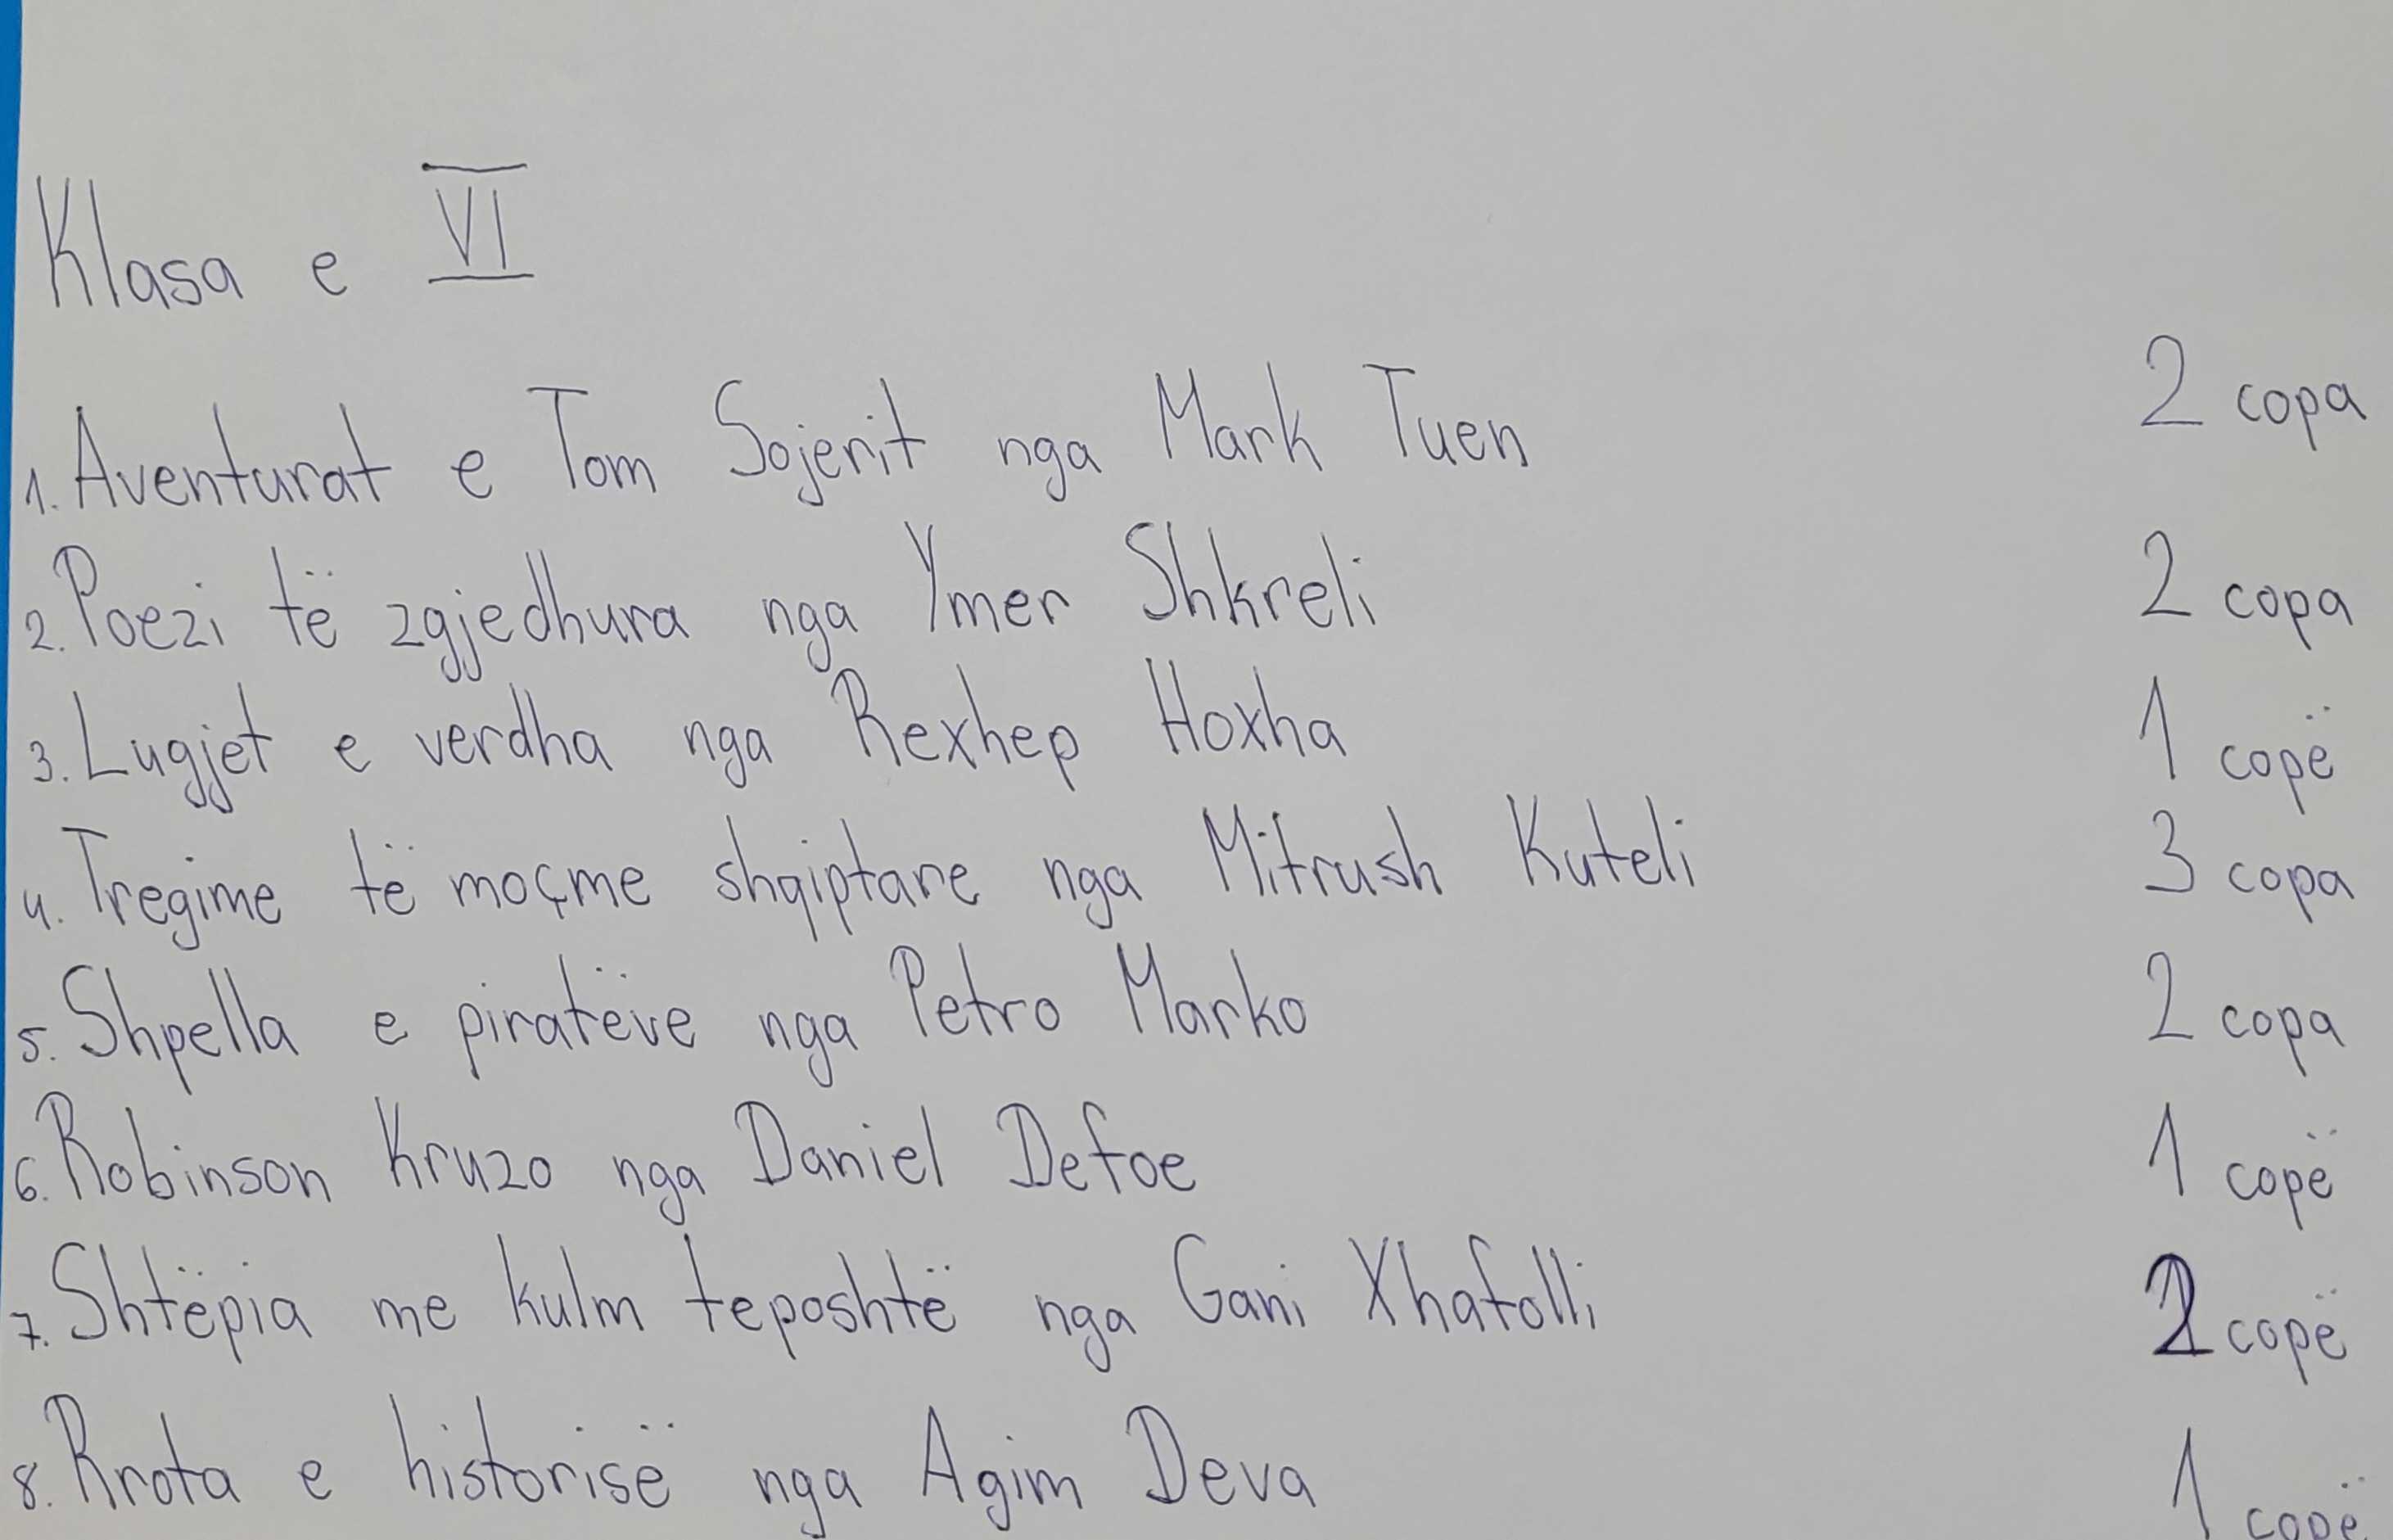 Klasa e VI
1. Aventurat e Tom Sojerit nga Mark Tuen 2 copa
2. Poezi të zgjedhura nga Ymer Shkreli 2 copa
3. Lugjet e verdha nga Rexhep Hoxha 1 copë
4. Tregime të moçme shqiptare nga Mitrush Kuteli 3 copa
5. Shpella e piratëve nga Petro Marko 2 copa
6. Robinson Kruzo nga Daniel Defoe 1 copë
7. Shtëpia me kulm teposhtë nga Gani Xhafolli 2 copë
8. Rrota e historisë nga Agim Deva 1 copë